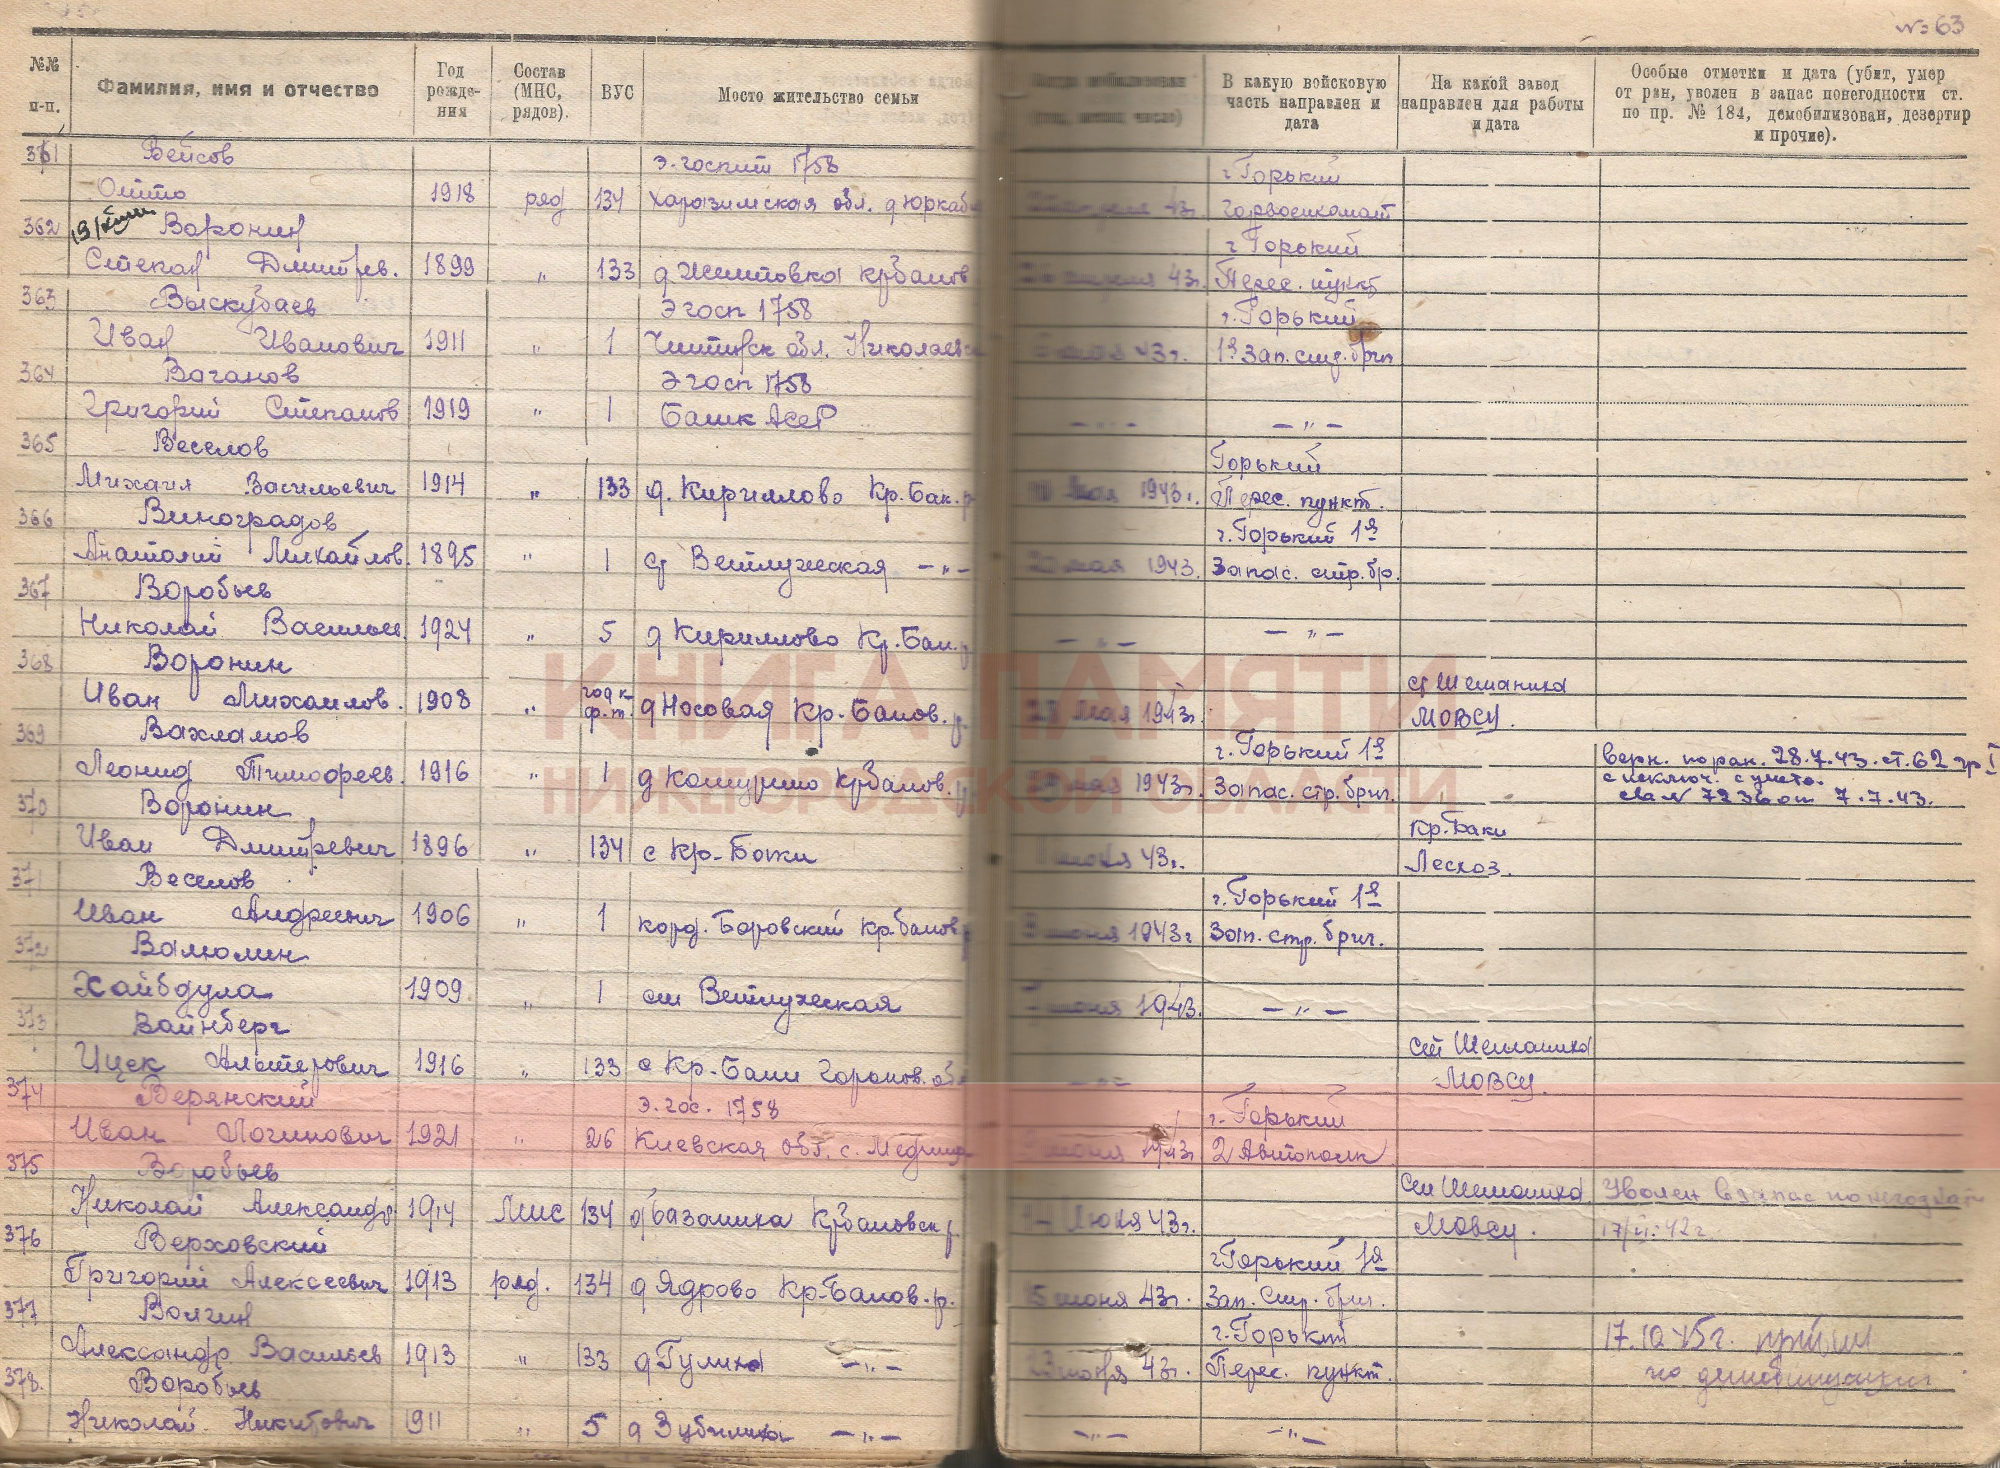 № 63
№№ п-п.
Фамилия, имя и отчество
Год рожде- ния
Состав (МНС, рядов).
ВУС
Мосто жительство семьи
В какую войсковую часть направлен и дата
На какой завод направлен для работы и дата
Особые отметки и дата (убит, умер от ран, уволен в запас понегодности ст. по пр. № 184, демобилизован, дезертир и прочие).
361 Вейсов э. госпит 1758 г Горький
1918 ряд 134 обл. 43г. Горвоенкомат
362 Воронин г Горький
Степан Дмитрев. 1899 „ 133 д 43г. Перес. пункт
363 Выскубаев Э госп 1758 г. Горький
Иван Иванович 1911 „ 1 обл. 43г. 1я Зап. стр. бриг.
364 Ваганов Э госп 1758
Григорий Степанов 1919 „ 1 Башк АССР — „ — — „ —
365 Веселов Горький
Михаил Васильевич 1914 „ 133 д. Кириллово Кр. Бак. р мая 1943г. Перес. пункт.
366 Виноградов г. Горький 1я
Анатолий Михайлов. 1895 „ 1 ст Ветлужская — „ — мая 1943. Запас. стр. бр.
367 Воробьев
Николай Васильев. 1924 „ 5 д Кириллово Кр. Бак. р — „ — — „ —
368 Воронин ст Шеманиха
Иван Михайлов. 1908 „ д Носовая Кр. Баков. р. мая 1943г. МОВСУ.
369 Вахламов г. Горький 1я
Леонид Тимофеев. 1916 „ 1 д Кр Баков. р мая 1943г. Запас. стр. бриг. 28.7.43. ст. 62
с исключ. с учета.
7.7.43.
370 Воронин Кр. Баки
Иван Дмитревич 1896 „ 134 с Кр-Баки июня 43г. Лесхоз.
371 Веселов г. Горький 1я
Иван Андреевич 1906 „ 1 корд. Боровский Кр. баков р июня 1943г Зап. стр. бриг.
372 Валюлин
Хайбдула 1909 „ 1 ст Ветлужская июня 1943. — „ —
373 Вайнберг ст Шеманиха
Ицек Альтерович 1916 „ 133 с Кр-Баки Горьков. обл — „ — МОВСУ.
374 Верянский э. гос. 1758 г. Горький
Иван Логинович 1921 „ 26 Киевская обл. с. июня 1943г 2 Автополк
375 Воробьев ст Шеманиха Уволен в запас по негодности
Николай Александр 1914 Мнс 134 д Крбаковск р. 43г. Мовсу.
376 Верховский г Горький 1я
Григорий Алексеевич 1913 ряд. 134 д Ядрово Кр-Баков. р. 15 июня 43г. Зап. Стр. бриг.
377 Волгин г. Горький 17.10.45г. прибыл
Александр Васильев 1913 „ 133 д — „ — 43г. Перес. пункт. по демобилизации
378. Воробьев
Николай Никитович 1911 „ 5 д Зубилиха — „ — — „ — — „ —
КНИГА ПАМЯТИ
НИЖЕГОРОДСКОЙ ОБЛАСТИ